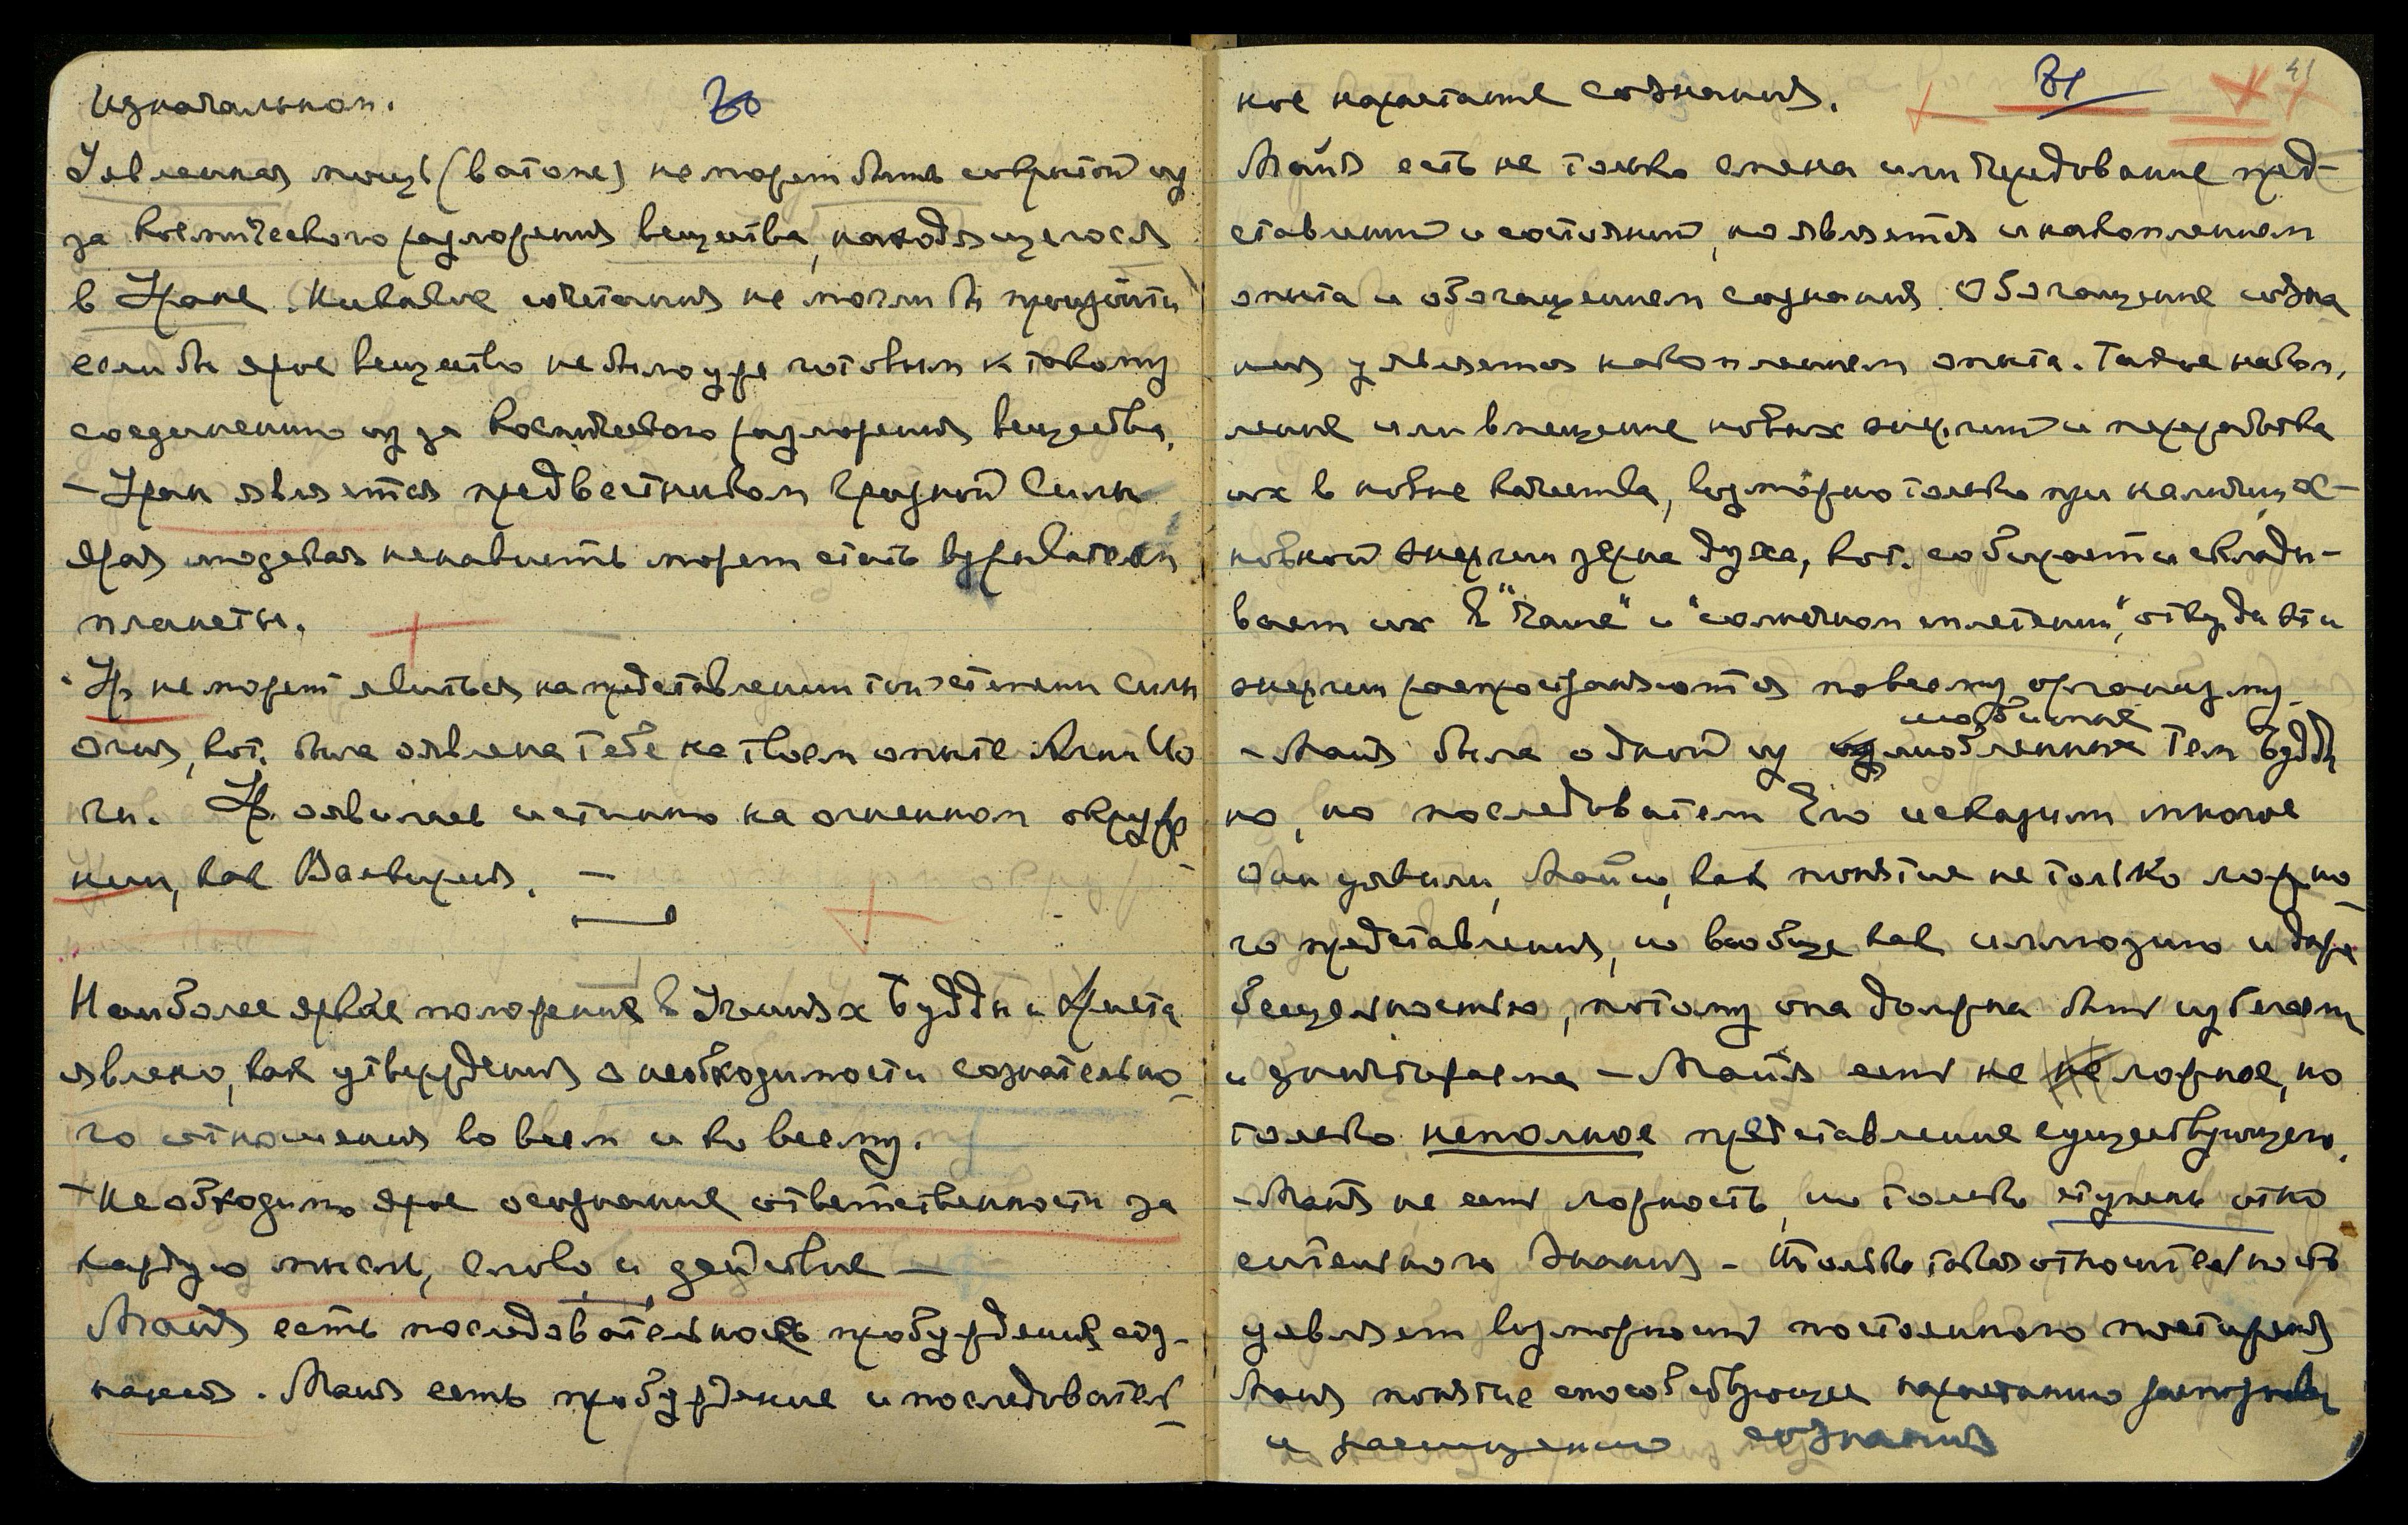 Изначальном.
80
Явленная мощь (в атоме) не может быть сокрытой из
за космического разложения вещества, находящегося
в Уране. Никакие сочетания не могли бы произойти
если бы ярое вещество не было уже готовым к такому
соединению из за космического разложения вещества,
– Уран является предвестником грозной Силы
ярая людская ненависть может стать взрывателем
планеты.
не может явиться на представлении той степени силы
огня, кот. была явлена тебе на твоем опыте Агни Йо
ги. Ур. явилась истинно на огненном окруж
нии, как Валькирия. –
Наиболее яркие положения в Учениях Будды и Христа
явлено, как утверждения о необходимости сознательно-
го отношения во всем и ко всему.
– Необходимо ярое осознание ответственности за
каждую мысль, слово, и действие –
Майя есть последовательность пробуждения соз-
нания. Майя есть пробуждение и последователь-
ное нарастание сознания.
81
41
Майя есть не только смена или чередование пред-
ставлений и состояний, но является и накоплением
опыта и обогащением сознания. Обогащение созна
ния уявляется накоплением опыта. Такое накоп-
ление или вмещение новых энергий и переработка
их в новые качества, возможно только при наличии ос-
новной энергии зерна духа, кот. собирает и склады-
вает их в "Чаше" и "солнечном сплетении", откуда эти
энергии распространяются по всему организму
любимые
– Майя была одной из излюбленных тем Будды
но, но последователи Его исказили многое
Они уявили, Майю, как понятие не только ложно
го представления, но вообще как иллюзию и даже
бесцельностью, потому она должна быть избегаем
и уничтожаема – Майя есть не не ложное, но
только неполное представление существующего.
– Майя не есть ложность, но только ступень отно
сительного знания – Только такая относительность
уявляет возможность постоянного постижения
Майя понятие способствующее нарастанию распознав
и расширению сознания